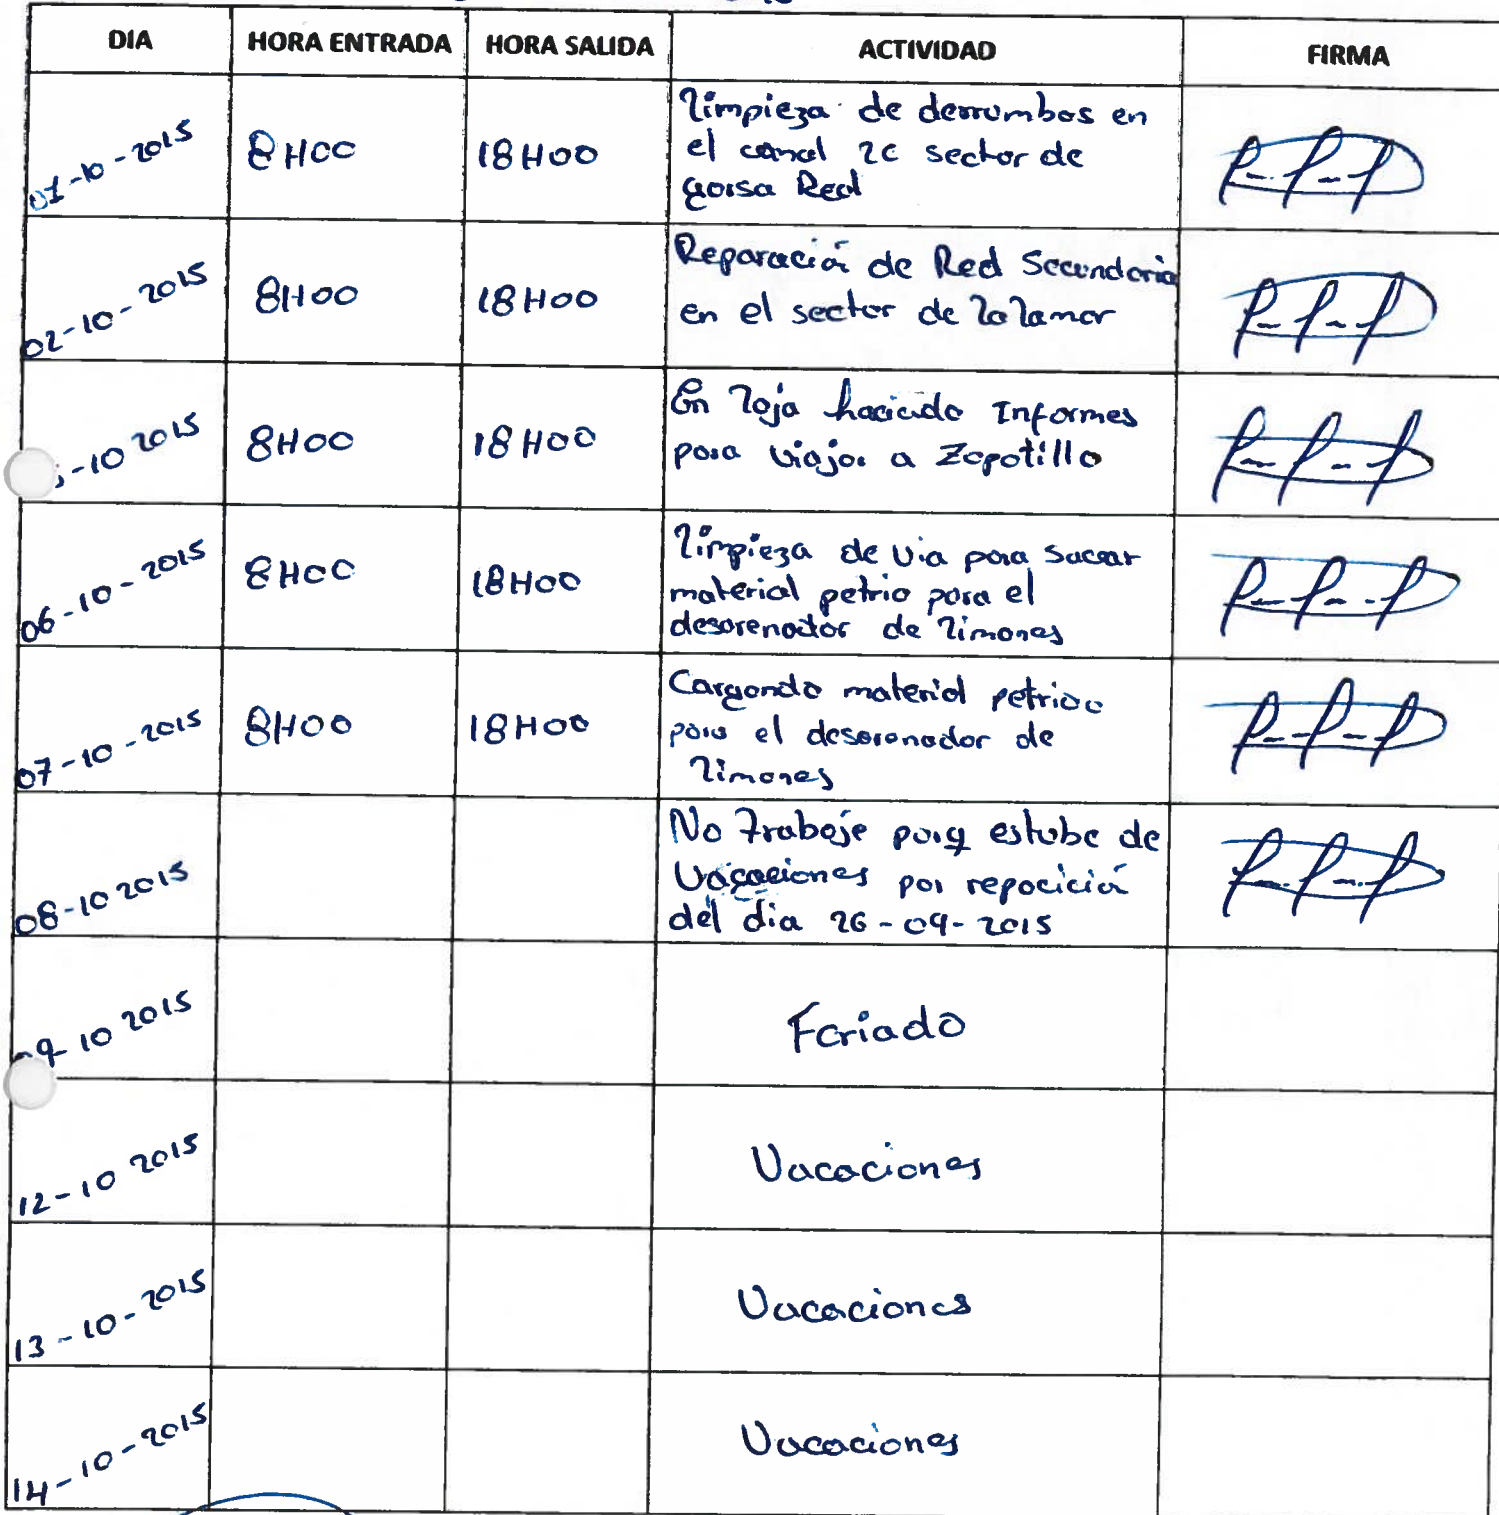 DIA HORA ENTRADA HORA SALIDA ACTIVIDAD FIRMA
01-10-2015 8H00 18H00 Limpieza de derrumbos en
el canal 2C sector de
Garsa Real
02-10-2015 8H00 18H00 Reparación de Red Secundaria
en el sector de Lalamor
-10 2015 8H00 18H00 En Loja haciendo Informes
para viajar a Zapotillo
06-10-2015 8H00 18H00 Limpieza de via para sacar
material petrio para el
desarenador de Limones
07-10-2015 8H00 18H00 Cargando material petrio
para el desarenador de
Limones
08-10 2015 No Trabaje porq estube de
Vacaciones por repocición
del dia 26-09-2015
09 10 2015 Feriado
12-10 2015 Vacaciones
13-10-2015 Vacaciones
14-10-2015 Vacaciones